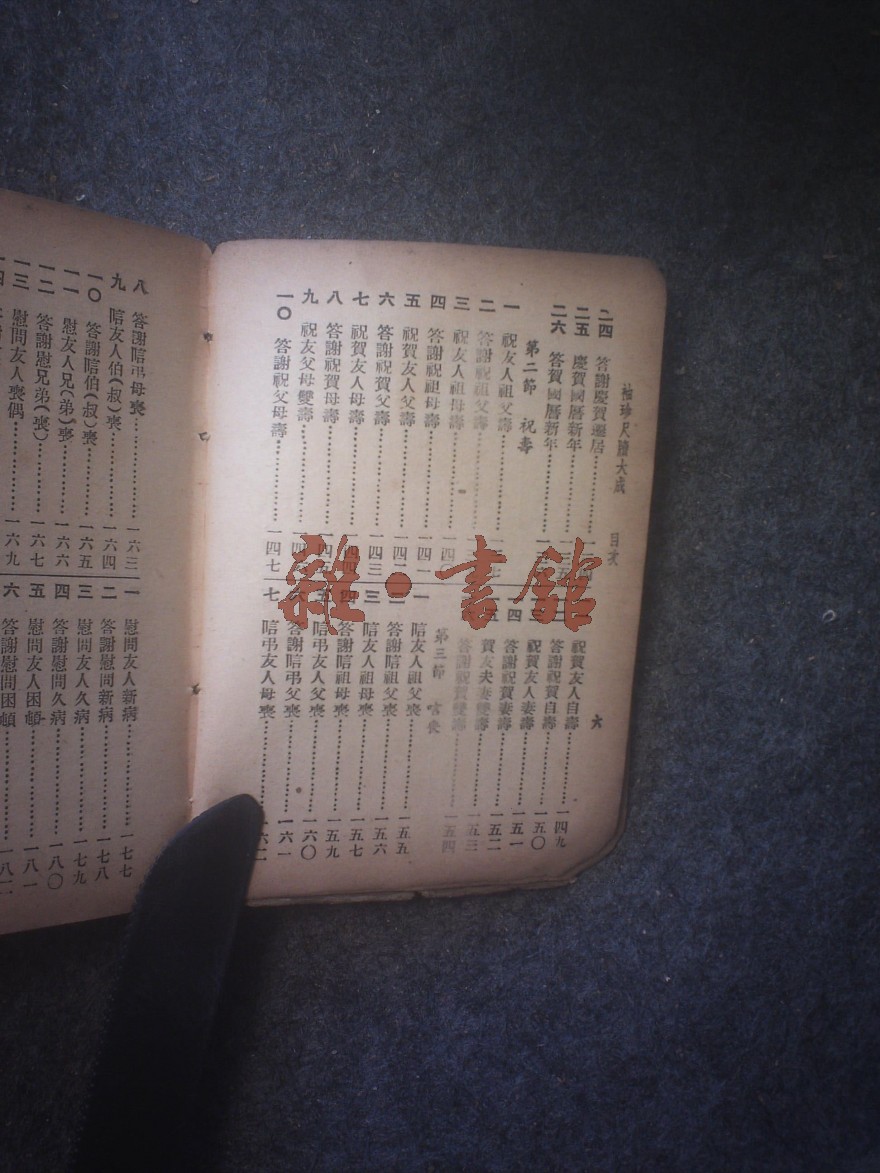 袖珍尺牘大成 目次 六
二四 答謝慶賀遷居
二五 慶賀國曆新年
二六 答賀國曆新年
第二節 祝壽
一 祝友人祖父壽
二 答謝祝祖父壽
三 祝友人祖母壽 一四〇
四 答謝祝祖母壽 一四一
五 祝賀友人父壽 一四二
六 答謝祝賀父壽 一四三
七 祝賀友人母壽 一四四
八 答謝祝賀母壽 一四五
九 祝友父母雙壽 一四六
一〇 答謝祝父母壽 一四七
祝賀友人自壽 一四九
答謝祝賀自壽 一五〇
祝賀友人妻壽 一五一
一四 答謝祝賀妻壽 一五二
一五 賀友夫妻雙壽 一五三
答謝祝賀雙壽 一五四
第三節
一 唁友人祖父喪 一五五
二 答謝唁祖父喪 一五六
三 唁友人祖母喪 一五七
四 答謝唁祖母喪 一五九
五 唁弔友人父喪 一六〇
六 答謝唁弔父喪 一六一
七 唁弔友人母喪 一六二
八 答謝唁弔母喪 一六三
九 唁友人伯(叔)喪 一六四
一〇 答謝唁伯(叔)喪 一六五
一一 慰友人兄(弟)喪 一六六
一二 答謝慰兄弟(喪) 一六七
一三 慰問友人喪偶 一六九
一四
一 慰問友人新病 一七七
二 答謝慰問新病 一七八
三 慰問友人久病 一七九
四 答謝慰問久病 一八〇
五 慰問友人困頓 一八一
六 答謝慰問困頓 一八二
雜·書館